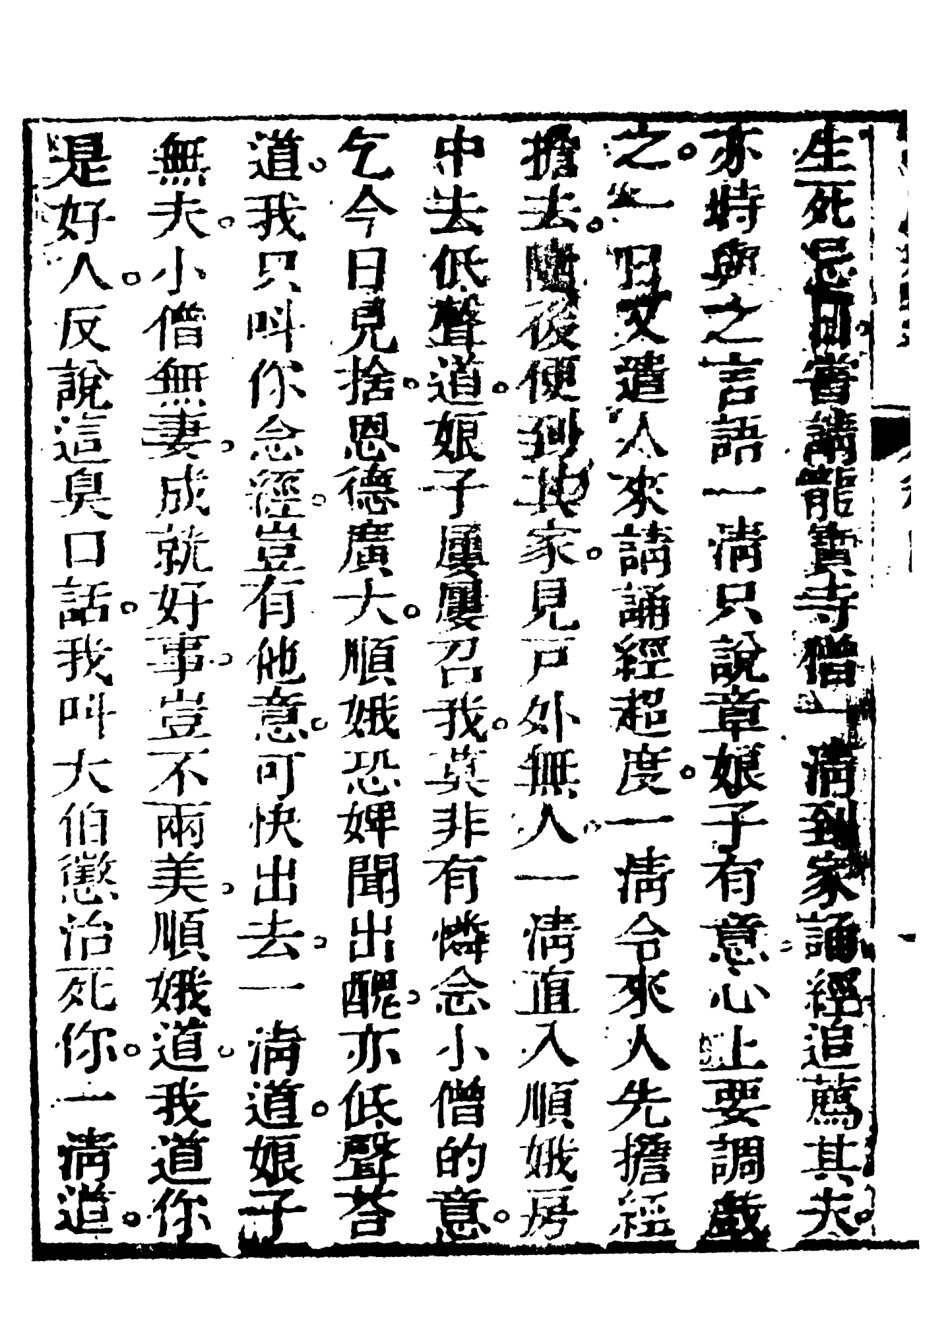 生死忌日嘗請龍寶寺僧一清到家誦經追薦其夫。
亦時與之言語一清只說章娘子有意心上要調戲
之。一日又遣人來請誦經超度。一清令來人先擔經
擔去。隨後便到其家。見戶外無人。一清直入順娥房
中去低聲道。娘子屢屢召我。莫非有憐念小僧的意。
乞今日見捨。恩德廣大。順娥恐婢聞出醜。亦低聲荅
道。我只叫你念經。豈有他意。可快出去。一清道。娘子
無夫。小僧無妻。成就好事。豈不兩美。順娥道。我道你
是好人。反說這臭口話。我叫大伯懲治死你。一清道。